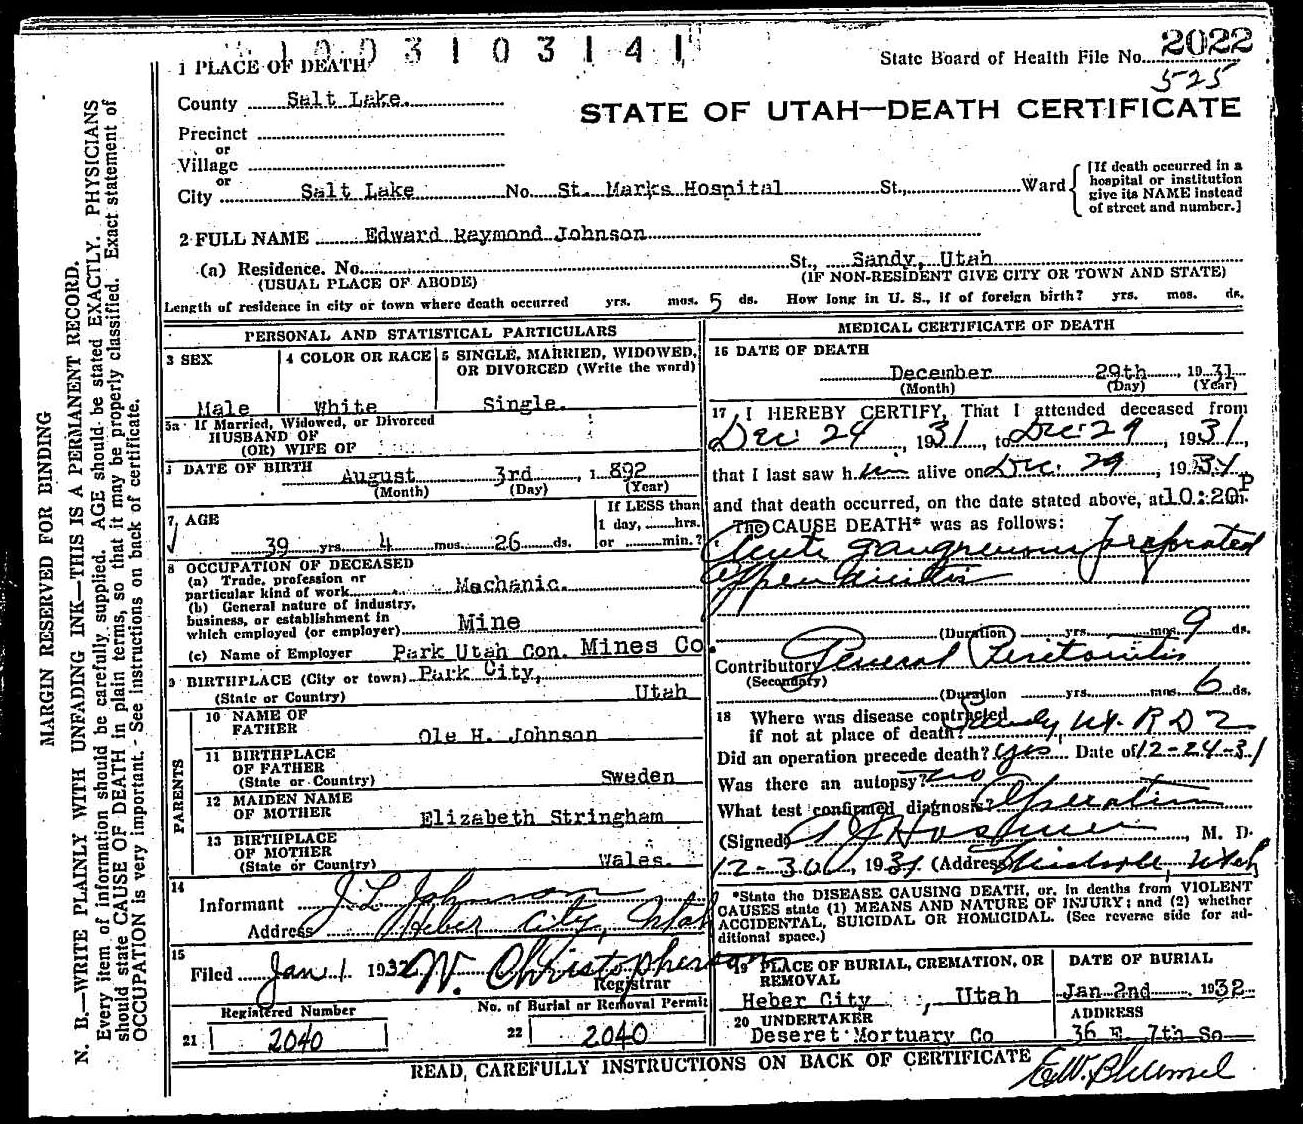 1 0 0 3 1 0 3 1 4 1
1 PLACE OF DEATH
State Board of Health File No. 2022
525
County Salt Lake.
STATE OF UTAH—DEATH CERTIFICATE
Precinct
or
Village
or
City Salt Lake No. St. Marks Hospital St., Ward
[If death occurred in a
hospital or institution
give its NAME instead
of street and number.]
2 FULL NAME Edward Raymond Johnson
(a) Residence. No. St., Sandy, Utah
(USUAL PLACE OF ABODE) (IF NON-RESIDENT GIVE CITY OR TOWN AND STATE)
Length of residence in city or town where death occurred yrs. mos. 5 ds. How long in U. S., if of foreign birth? yrs. mos. ds.
PERSONAL AND STATISTICAL PARTICULARS
3 SEX
Male
4 COLOR OR RACE
White
5 SINGLE, MARRIED, WIDOWED,
OR DIVORCED (Write the word)
Single.
5a If Married, Widowed, or Divorced
HUSBAND OF
(OR) WIFE OF
DATE OF BIRTH August 3rd, 1892
(Month) (Day) (Year)
7 AGE
39 yrs. 4 mos. 26 ds.
If LESS than
1 day, hrs.
or min.?
8 OCCUPATION OF DECEASED
(a) Trade, profession or
particular kind of work Mechanic.
(b) General nature of industry,
business, or establishment in
which employed (or employer) Mine
(c) Name of Employer Park Utah Con. Mines Co.
9 BIRTHPLACE (City or town) Park City,
(State or Country) Utah
PARENTS
10 NAME OF
FATHER Ole H. Johnson
11 BIRTHPLACE
OF FATHER
(State or Country) Sweden
12 MAIDEN NAME
OF MOTHER Elizabeth Stringham
13 BIRTHPLACE
OF MOTHER
(State or Country) Wales.
14
Informant J L Johnson
Address Heber City, Utah
15
Filed Jan 1 1932 W. Christopherson
Registrar
Registered Number
21 2040
No. of Burial or Removal Permit
22 2040
MEDICAL CERTIFICATE OF DEATH
16 DATE OF DEATH
December 29th, 1931
(Month) (Day) (Year)
17 I HEREBY CERTIFY, That I attended deceased from
Dec 24, 1931, to Dec 29, 1931,
that I last saw him alive on Dec. 29, 1931
and that death occurred, on the date stated above, at 10:20 P m.
The CAUSE DEATH* was as follows:
Acute gangrenous perforated
Appendicitis
(Duration) yrs. mos. 9 ds.
Contributory General Peritonitis
(Secondary)
(Duration) yrs. mos. 6 ds.
18 Where was disease contracted
if not at place of death? Sandy, Ut. R D 2
Did an operation precede death? yes Date of 12-24-31
Was there an autopsy? no
What test confirmed diagnosis? Operation
(Signed) M. D.
12-30, 1931 (Address) Midvale, Utah
*State the DISEASE CAUSING DEATH, or, in deaths from VIOLENT
CAUSES state (1) MEANS AND NATURE OF INJURY; and (2) whether
ACCIDENTAL, SUICIDAL OR HOMICIDAL. (See reverse side for ad-
ditional space.)
19 PLACE OF BURIAL, CREMATION, OR
REMOVAL
Heber City, Utah
DATE OF BURIAL
Jan 2nd 1932
20 UNDERTAKER
Deseret Mortuary Co
ADDRESS
36 E. 7th So
READ, CAREFULLY INSTRUCTIONS ON BACK OF CERTIFICATE
MARGIN RESERVED FOR BINDING
N. B.—WRITE PLAINLY WITH UNFADING INK—THIS IS A PERMANENT RECORD.
Every item of information should be carefully supplied. AGE should be stated EXACTLY. PHYSICIANS
should state CAUSE OF DEATH in plain terms, so that it may be properly classified. Exact statement of
OCCUPATION is very important. See instructions on back of certificate.